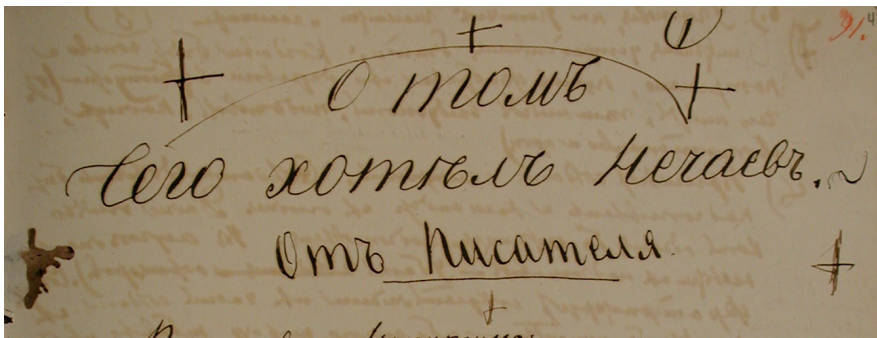 91. 4
О томъ
Чего хотѣлъ Нечаевъ.
Отъ Писателя.